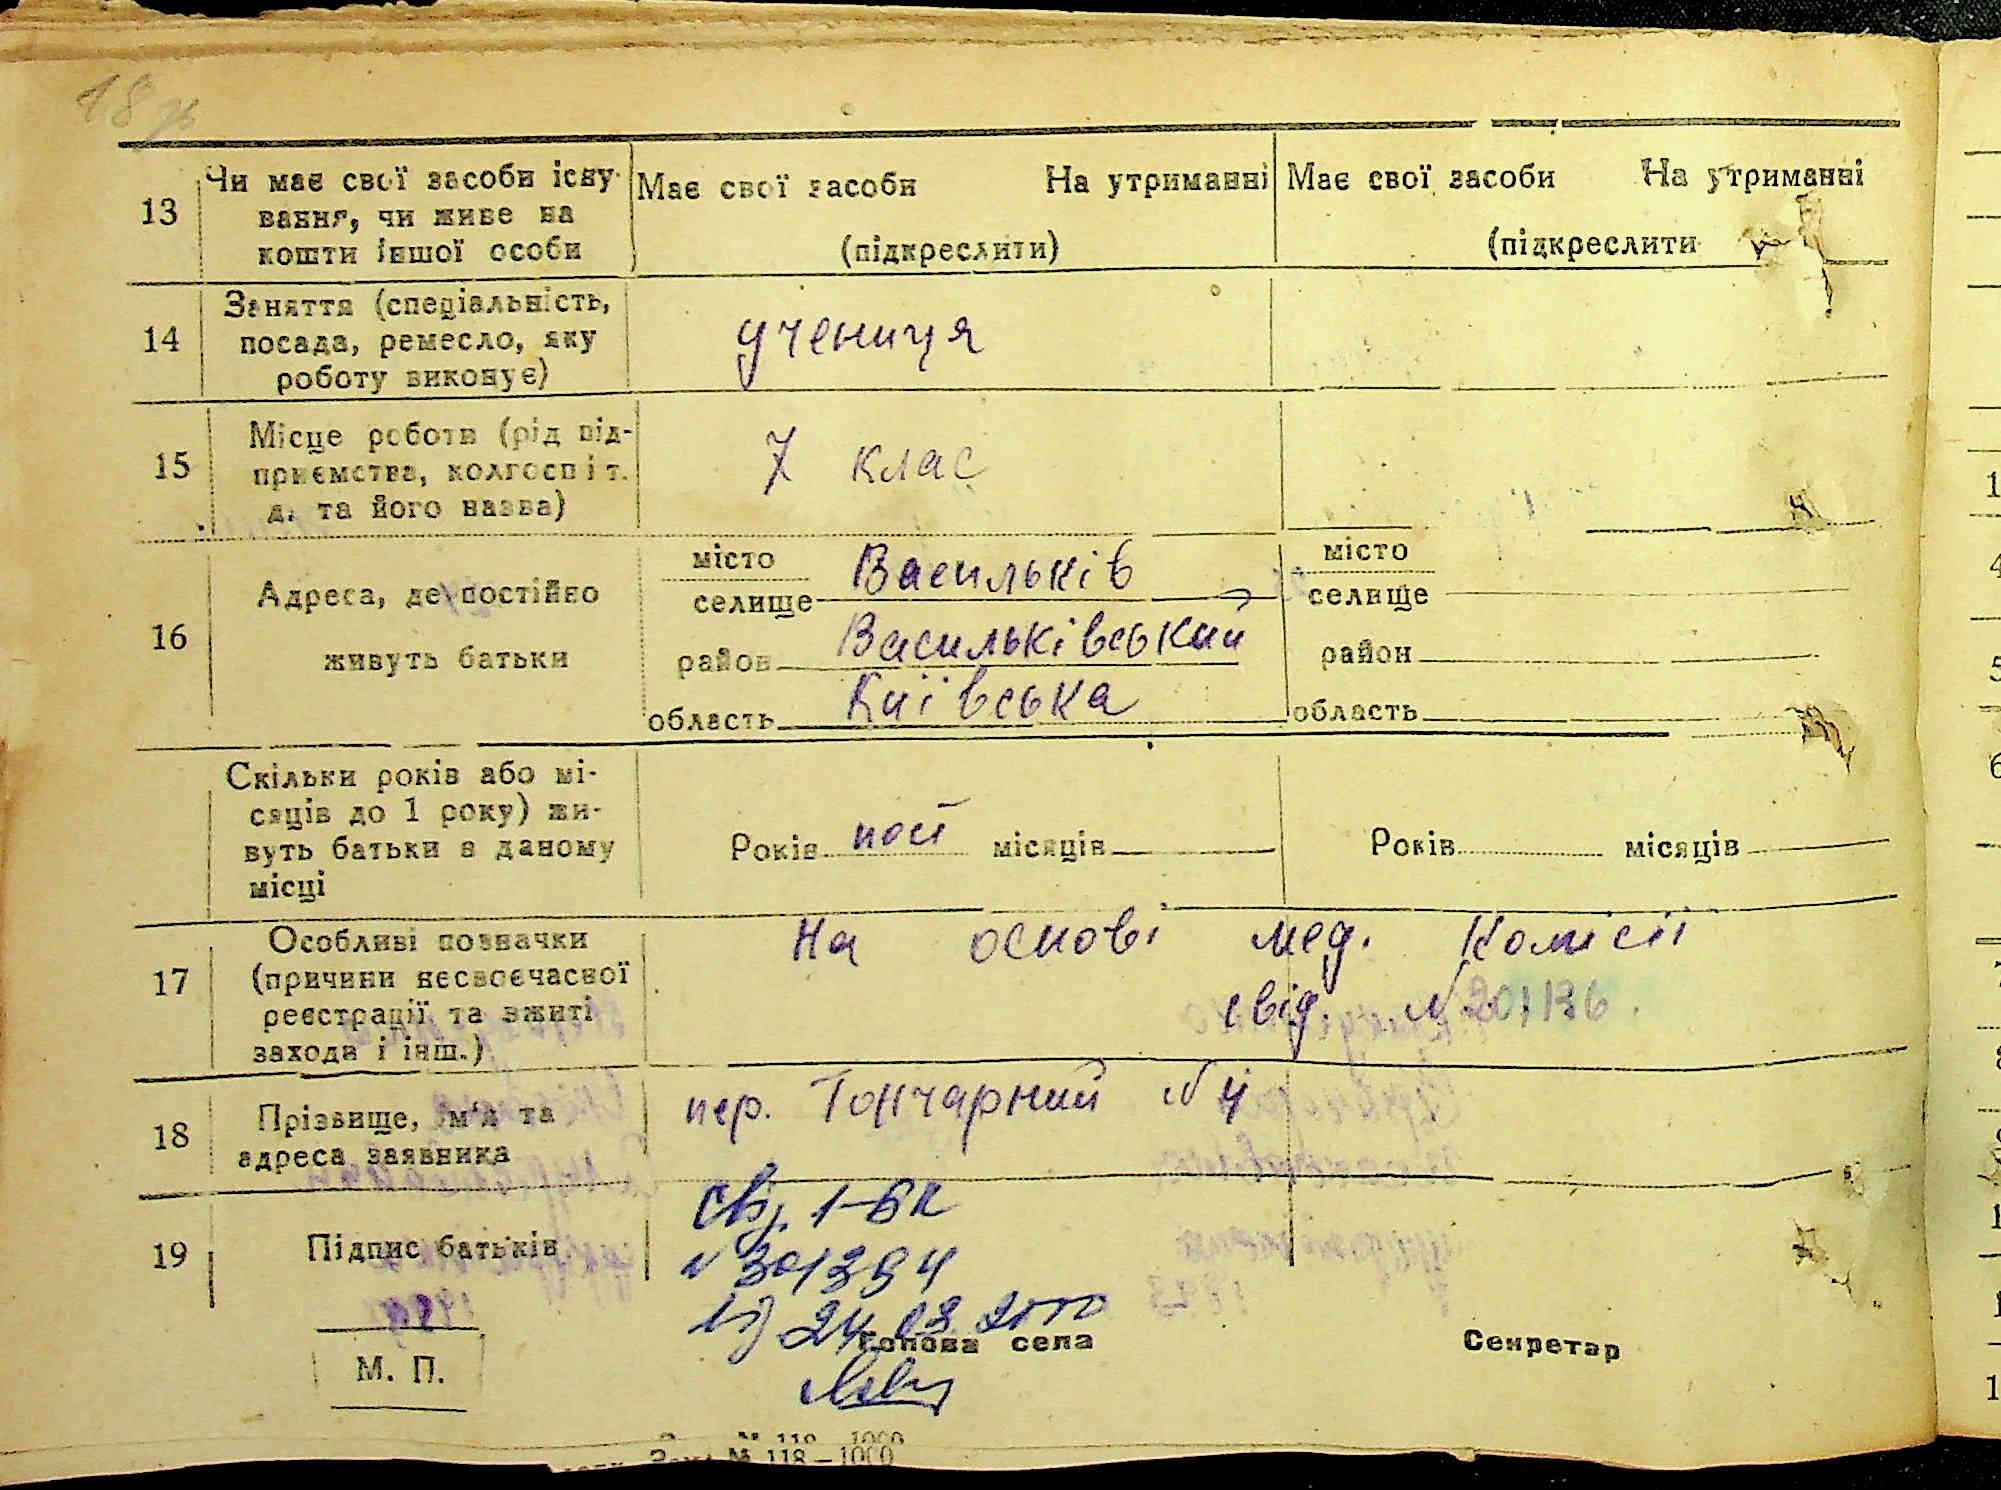 18
13 Чи має свої засоби існу- Має свої засоби На утриманні Має свої засоби На утриманні
вання, чи живе на
кошти іншої особи (підкреслити) (підкреслити
14 Заняття (спеціальність,
посада, ремесло, яку учениця
роботу виконує)
Місце роботи (рід під-
15 приємства, колгосп і т. 7 клас
д. та його назва)
місто Васильків місто
16 Адреса, де постійно селище селище
живуть батьки район Васильківський район
область Київська область
Скільки років або мі-
сяців до 1 року) жи-
вуть батьки в даному Років пост місяців Років місяців
місці
Особливі позначки На основі мед. Комісії
17 (причини несвоєчасної
реєстрації та вжиті свід. № 201136.
заходи і інш.)
18 Прізвище, ім'я та пер. Гончарний № 4
адреса заявника
Свід. 1-БК
19 Підпис батьків № 301394
24.03.2000
Голова села Секретар
М. П.
Зак. № 118—1000